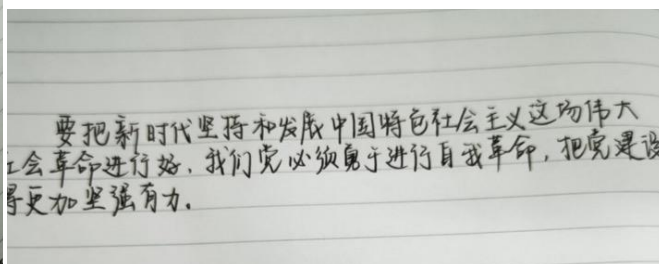 要把新时代坚持和发展中国特色社会主义这场伟大
社会革命进行好，我们党必须勇于进行自我革命，把党建设
得更加坚强有力。